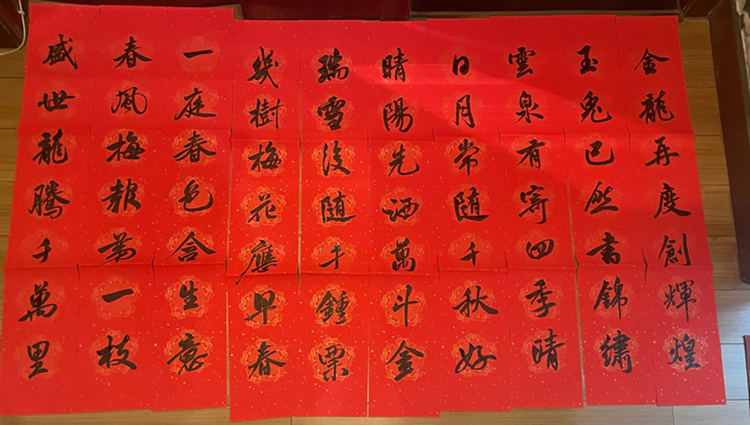 金龍再度創輝煌
玉兔已然書錦繡
雲泉有寄四季晴
日月常随千秋好
晴陽先洒萬斗金
瑞雪後随千鍾粟
幾樹梅花應早春
一庭春色含生意
春風梅報第一枝
盛世龍騰千萬里